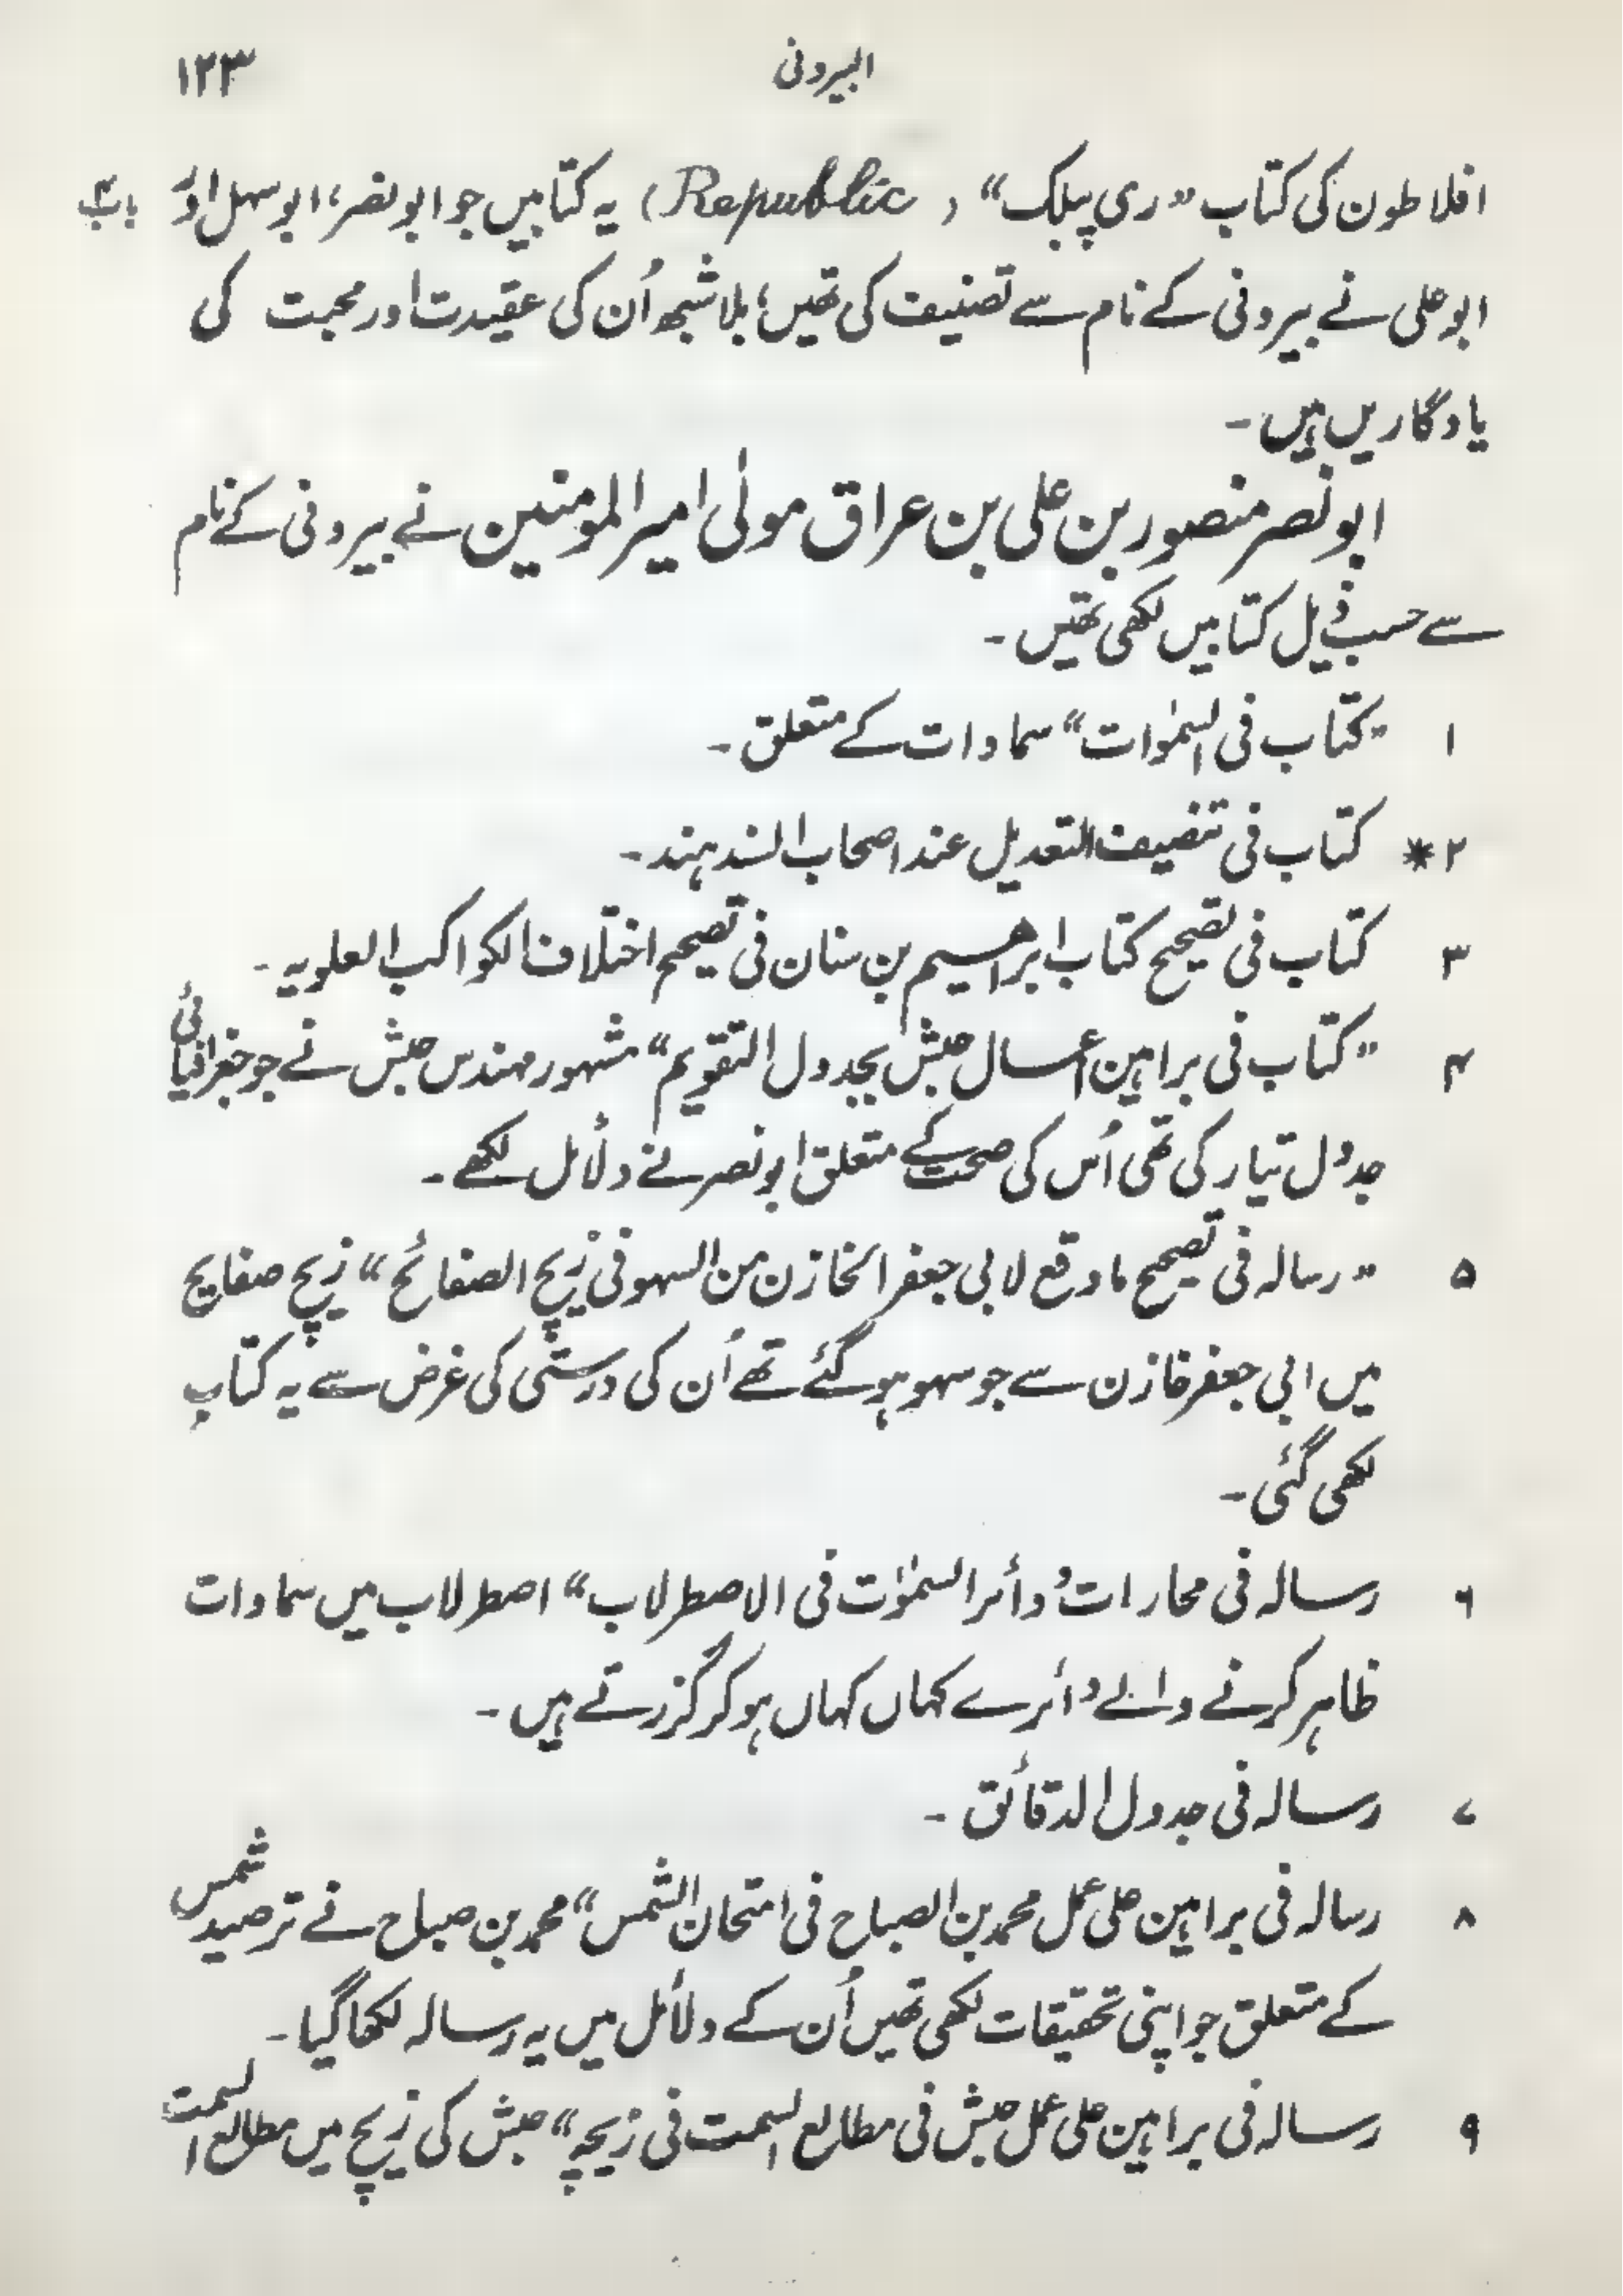 البیرونی ۱۲۳
افلاطون کی کتاب "ری پبلک" (Republic) یہ کتابیں جو ابو نصر، ابو سہل اور باب۴
ابو علی نے بیرونی کے نام سے تصنیف کی تھیں؛ بلا شبھ اُن کی عقیدت اور محبت کی
یادگاریں ہیں۔
ابو نصر منصور بن علی بن عراق مولٰی امیر المومنین نے بیرونی کے نام
سے حسب ذیل کتابیں لکھی تھیں۔
۱ "کتاب فی السمٰوات" سماوات کے متعلق۔
۲* کتاب فی تنصیف التعدیل عند اصحاب السند ہند۔
۳ کتاب فی تصحیح کتاب ابراھیم بن سنان فی تصحیح اختلاف الکواکب العلویہ۔
۴ "کتاب فی براہین اعمال حبش بجدول التقویم" مشہور مہندس حبش نے جو جغرافیائی
جدول تیار کی تھی اُس کی صحت کے متعلق ابو نصر نے دلائل لکھے۔
۵ "رسالہ فی تصحیح ما وقع لابی جعفر الخازن من السہو فی زیچ الصفائح" زیچ صفایح
میں ابی جعفر خازن سے جو سہو ہو گئے تھے اُن کی درستی کی غرض سے یہ کتاب
لکھی گئی۔
۶ رسالہ فی محارات دوائر السمٰوٰت فی الاصطرلاب" اصطرلاب میں سماوات
ظاہر کرنے والے دائرے کہاں کہاں ہو کر گزرتے ہیں۔
۷ رسالہ فی جدول الدقائق۔
۸ رسالہ فی براہین علی عمل محمد بن الصباح فی امتحان الشمس" محمد بن صباح نے ترصید شمس
کے متعلق جو اپنی تحقیقات لکھی تھیں اُن کے دلائل میں یہ رسالہ لکھا گیا۔
۹ رسالہ فی براہین علی عمل حبش فی مطالع السمت فی زیچہ" حبش کی زیچ میں مطالع السمت